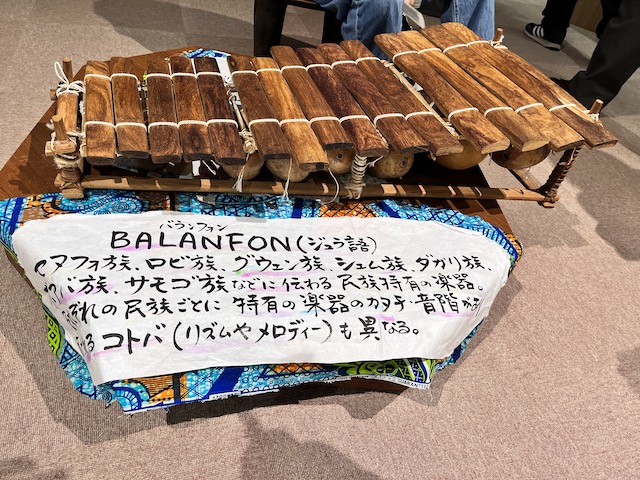 バランフォン
BALANFON(ジュラ語)
セヌフォ族、ロビ族、グウェン族、シェム族、ダガリ族、
バ族、サモゴ族などに伝わる民族特有の楽器。
ぞれの民族ごとに 特有の楽器のカタチ・音階が
る コトバ(リズムやメロディー)も異なる。